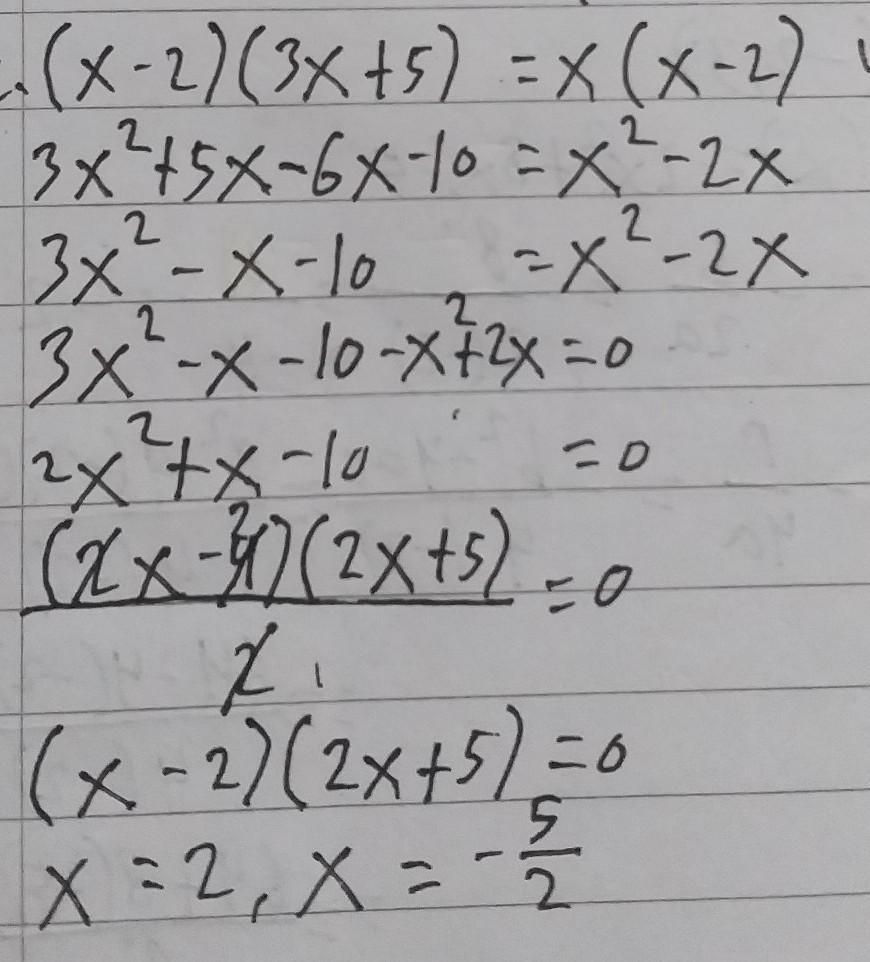 . (x-2)(3x+5) = x(x-2)
3x²+5x-6x-10 = x²-2x
3x²-x-10 = x²-2x
3x²-x-10-x²+2x=0
2x²+x-10 =0
(2x-4)(2x+5) =0
2
2 1
(x-2)(2x+5)=0
x=2, x=-5/2